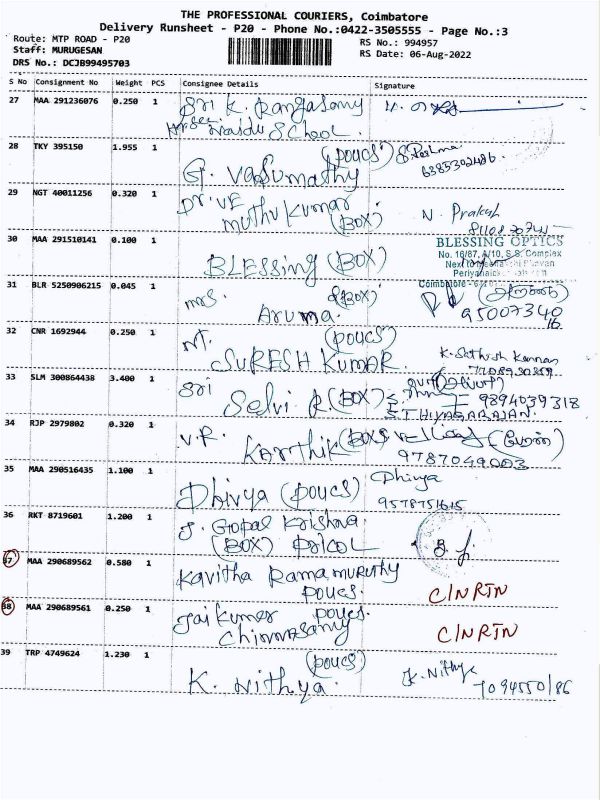 THE PROFESSIONAL COURIERS, Coimbatore
Delivery Runsheet - P20 - Phone No.:0422-3505555 - Page No.:3
Route: MTP ROAD - P20
RS No.: 994957
Staff: MURUGESAN
RS Date: 06-Aug-2022
DRS No.: DCJB99495703
S No Consignment No Weight PCS Consignee Details Signature
27 MAA 291236076 0.250 1 Sri K. Rangasamy
Naidu School
28 TKY 395150 1.955 1 (POUCS)
G. Vasumathy
6385302486
29 NGT 40011256 0.320 1 Dr. VE
Muthukumar
(BOX) N. Prakash
30 MAA 291510141 0.100 1 BLESSING (BOX)
BLESSING OPTICS
No. 16/87, A/10, S.S. Complex
31 BLR 5250906215 0.045 1 Mrs. (BOX)
Aruma. 95007340
16
32 CNR 1692944 0.250 1 Mr. (POUCS)
SURESH KUMAR K. Sathish Kannan
33 SLM 300864438 3.400 1 Sri
Selvi R. (BOX) = 9894039318
THIYAGARAJAN.
34 RJP 2979802 0.320 1 V.R.
Karthik (BOX)
9787049003
35 MAA 290516435 1.100 1 Dhivya (POUCS) Dhivya
9578751615
36 RKT 8719601 1.200 1 J. Gopal Krishna
(BOX) PRICOL
37 MAA 290689562 0.580 1 Kavitha Ramamuruthy
POUCS. C/NRTN
38 MAA 290689561 0.250 1 Jaikumar POUCS.
Chinnasamy C/NRTN
39 TRP 4749624 1.230 1 (POUCS)
K. Nithya. K. Nithya